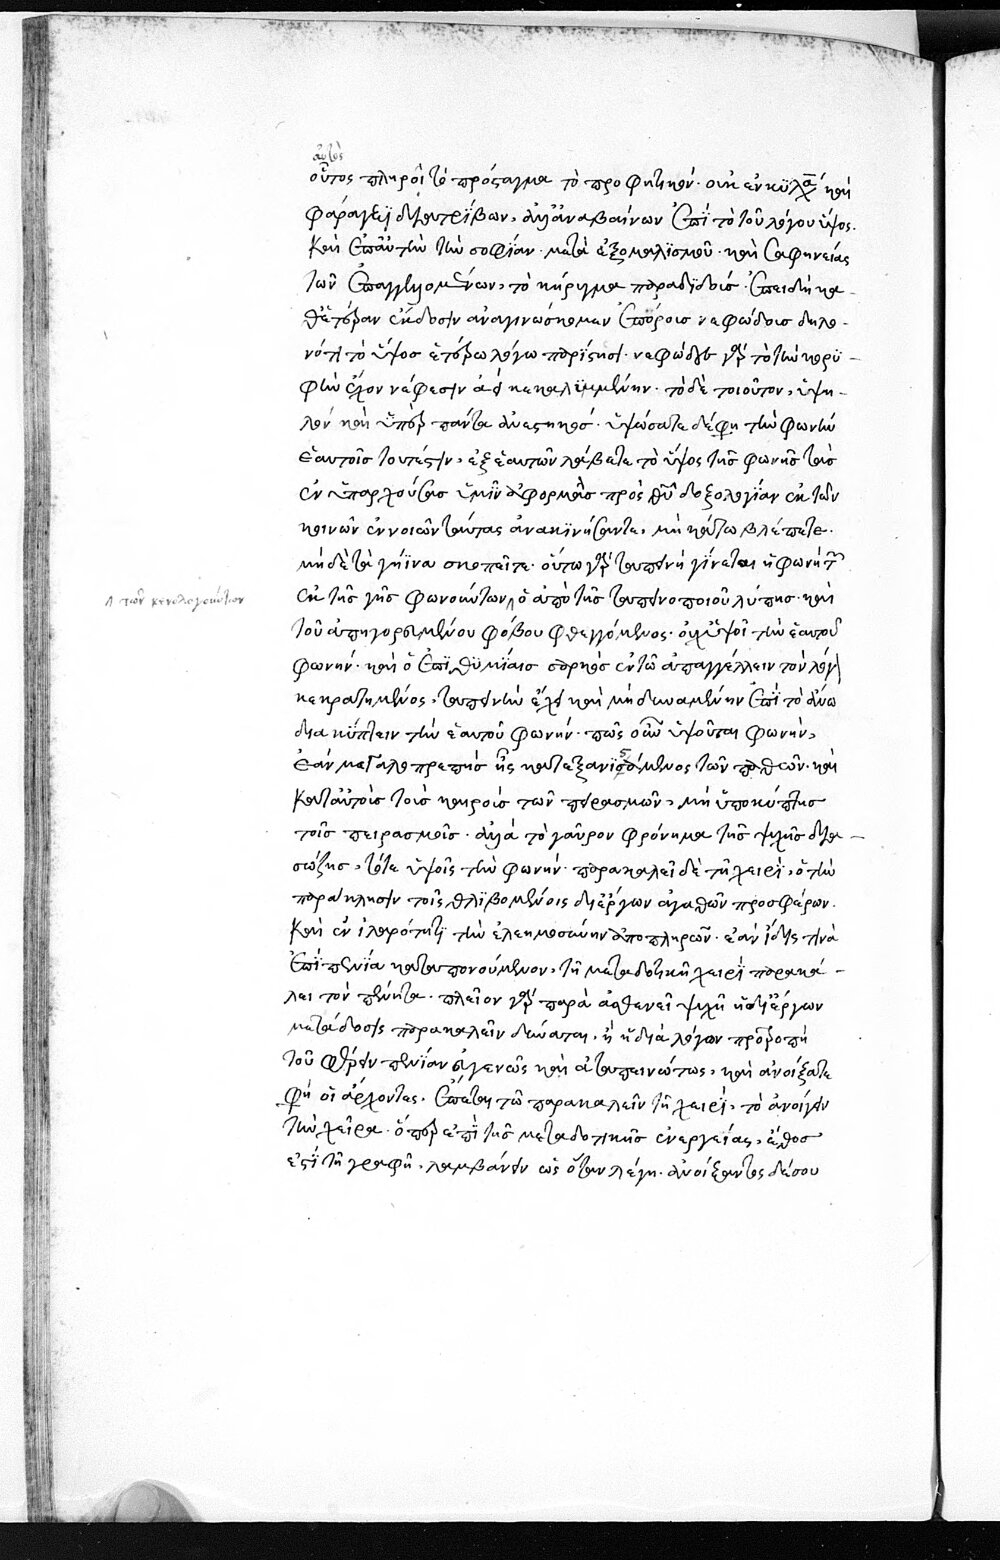 αὐτὸς
οὗτος πληροῖ τὸ πρόσταγμα τὸ προφητικόν· οὐκ ἐν κοιλάσι καὶ
φάραγξϊ διατρίβων, ἀλλ' ἀναβαίνων ἐπὶ τὸ τοῦ λόγου ὕψος.
Καὶ ἐπ' αὐτὴν τὴν σοφίαν· μετὰ ἐξομαλϊσμοῦ· καὶ σαφηνείας
τῶν ἐπαγγελλομένων, τὸ κήρυγμα παραδϊδούς· ἐπειδὴ κα-
θ' ἑτέραν ἔκδοσιν ἀναγινώσκομεν ἐπ' ὄρους γνοφώδους δηλο-
νότι τὸ ὕψος ἑτέρω λόγω παρίστησι· γνοφώδες γὰρ τὸ τὴν κορυ-
φὴν ἔχον νέφεσιν ἀεὶ κεκαλυμμένην· τὸ δὲ τοιοῦτον, ὑψη-
λὸν καὶ ὑπὲρ πάντα ἀνεστηκός· ὑψώσατε δέ φη τὴν φωνὴν
ἑαυτοῖς τουτέστιν, ἐξ ἑαυτῶν λάβετε τὸ ὕψος τῆς φωνῆς τὰς
ἐν ὑπαρχούσας ὑμῖν ἀφορμὰς πρὸς θῦ δοξολογίαν ἐκ τῶν
κοινῶν ἐννοιῶν ταύτας ἀνακϊνήσαντες, μὴ κάτω βλέπετε·
μηδὲ τὰ γήϊνα σκοπεῖτε· οὕτω γὰρ ταπεινὴ γίνεται ἡ φωνὴ τῶν
ἐκ τῆς γῆς φωνούντων ὁ ἀπὸ τῆς ταπεινοποιοῦ λύπης· καὶ
⸉ τῶν κενολογούντων
τοῦ ἀπηγορευμένου φόβου φθεγγόμενος· οὐχ ὑψοῖ τὴν ἑαυτοῦ
φωνήν· καὶ ὁ ἐπϊθϋμίαις σαρκὸς ἐν τῶ ἀπαγγέλλειν τὸν λόγον
κεκρατημένος, ταπεινὴν ἔχει καὶ μὴ δυναμένην ἐπὶ τὸ ἄνω
διακύπτειν τὴν ἑαυτοῦ φωνήν· πῶς οὖν ὑψοῦται φωνὴν,
ἐὰν μεγαλοπρεπὴς ᾖς κατεξανιστάμενος τῶν παθῶν· καὶ
κατ' αὐτοὺς τοὺς καιροὺς τῶν πειρασμῶν, μὴ ὑποκύπτης
τοῖς πειρασμοῖς· ἀλλὰ τὸ γαῦρον φρόνημα τῆς ψυχῆς δια-
σώζης, τότε ὑψοῖς τὴν φωνήν· παρακαλεῖ δὲ τῆ χειρὶ, ὁ τὴν
παράκλησιν τοῖς θλϊβομένοις δι' ἔργων ἀγαθῶν προσφέρων.
Καὶ ἐν ἱλαρότητϊ τὴν ἐλεημοσύνην ἀποπληρῶν· ἐὰν ἴδης τινὰ
ἐπὶ πενία καταπονούμενον, τῆ μεταδοτικῆ χειρὶ παρακά-
λει τὸν πένητα· πλεῖον γὰρ παρὰ ἀσθενεῖ ψυχῆ ἡ δι' ἔργων
μετάδοσις παρακαλεῖν δύναται, ἢ ἡ διὰ λόγων προτροπὴ
τοῦ φέρειν πενίαν εὐγενῶς καὶ ἀταπεινώτως, καὶ ἀνοίξατε
φη οἱ ἄρχοντες· ἕπεται τῶ παρακαλεῖν τῆ χειρὶ, τὸ ἀνοίγειν
τὴν χεῖρα· ὅπερ ἐπὶ τῆς μεταδοτικῆς ἐνεργείας, ἔθος
ἐστὶ τῆ γραφῆ, λαμβάνειν ὡς ὅταν λέγη· ἀνοίξαντος δέ σου